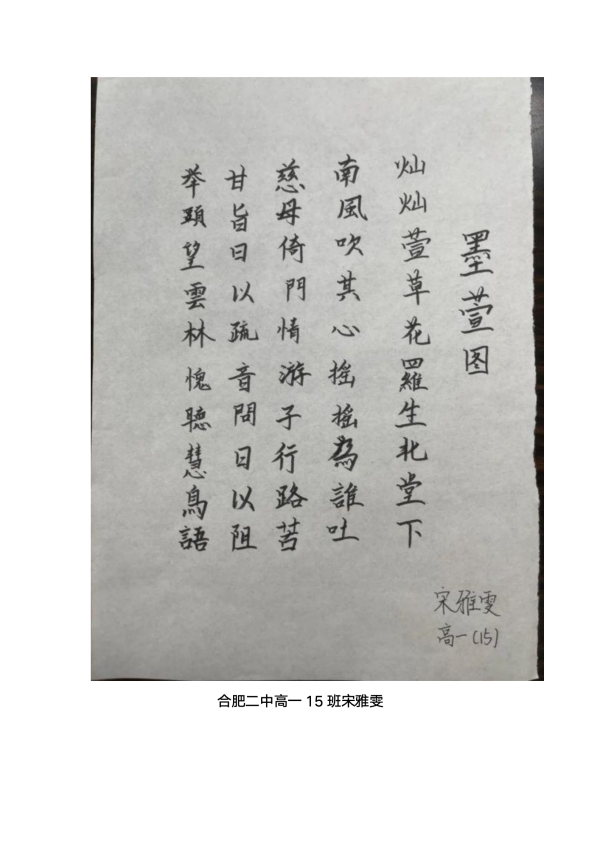 墨萱图
灿灿萱草花羅生北堂下
南風吹其心摇摇為誰吐
慈母倚門情游子行路苦
甘旨日以疏音問日以阻
举頭望雲林愧聽慧鳥語
宋雅雯
高一(15)
合肥二中高一 15 班宋雅雯